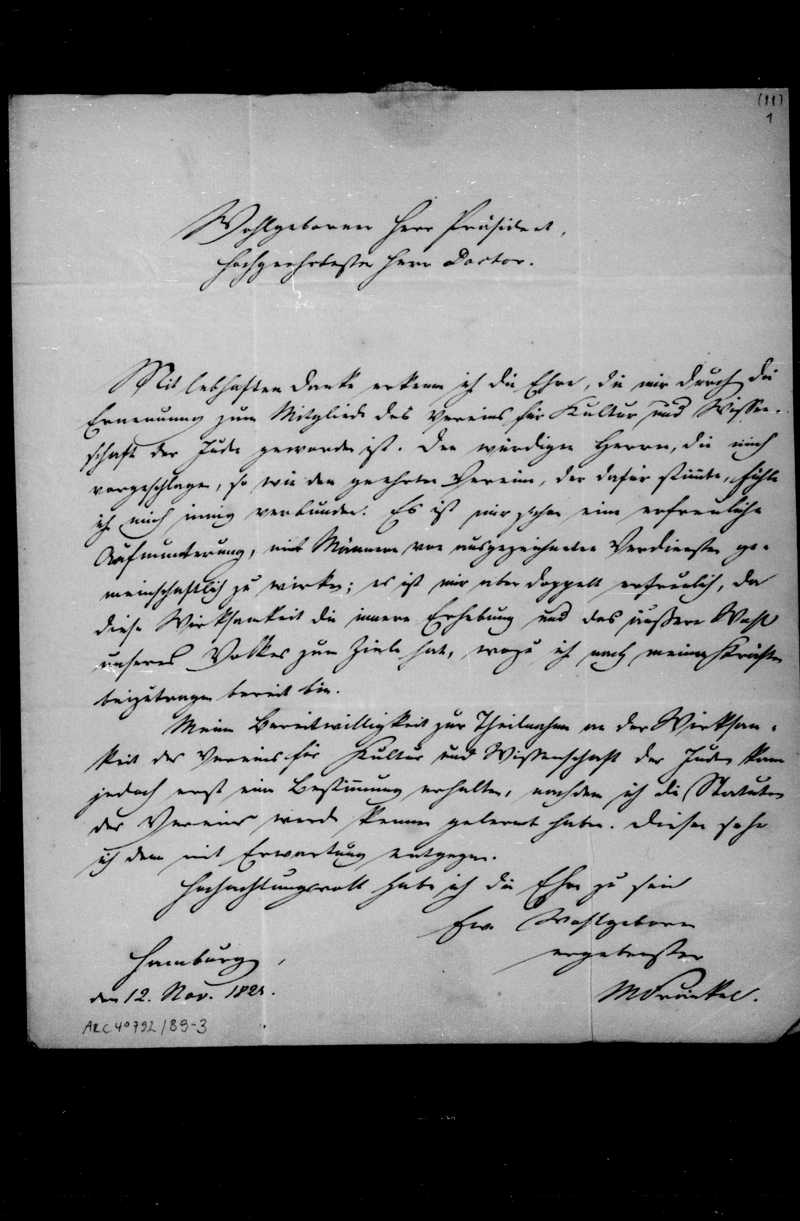 (11)
1
Wohlgeborner Herr Präsident,
Hochgeehrtester Herr Doctor.
Mit lebhaften Danke erkenne ich die Ehre, die mir durch die
Ernennung zum Mitgliede des Vereins für Kultur und Wissen-
schaft der Juden geworden ist. Den würdigen Herren, die mich
vorgeschlagen, so wie den geehrten Verein, der dafür stimmte, fühle
ich mich innig verbunden. Es ist mir schon eine erfreuliche
Aufmunterung, mit Männern von ausgezeichneten Verdiensten ge-
meinschaftlich zu wirken; es ist mir aber doppelt erfreulich, da
diese Wirksamkeit die innere Erhebung und das äußere Wohl
unseres Volkes zum Ziele hat, wozu ich nach meinen Kräften
beizutragen bereit bin.
Meine Bereitwilligkeit zur Theilnahme an der Wirksam-
keit des Vereins für Kultur und Wissenschaft der Juden kann
jedoch erst eine Bestimmung erhalten, nachdem ich die Statuten
des Vereins werde kennen gelernt haben. Diesen sehe
ich denn mit Erwartung entgegen.
Hochachtungsvoll habe ich die Ehre zu sein
Ew. Wohlgeborn
ergebenster
Hamburg,
den 12. Nov. 1821.
MFränkel.
ARC 4° 792 / B9-3